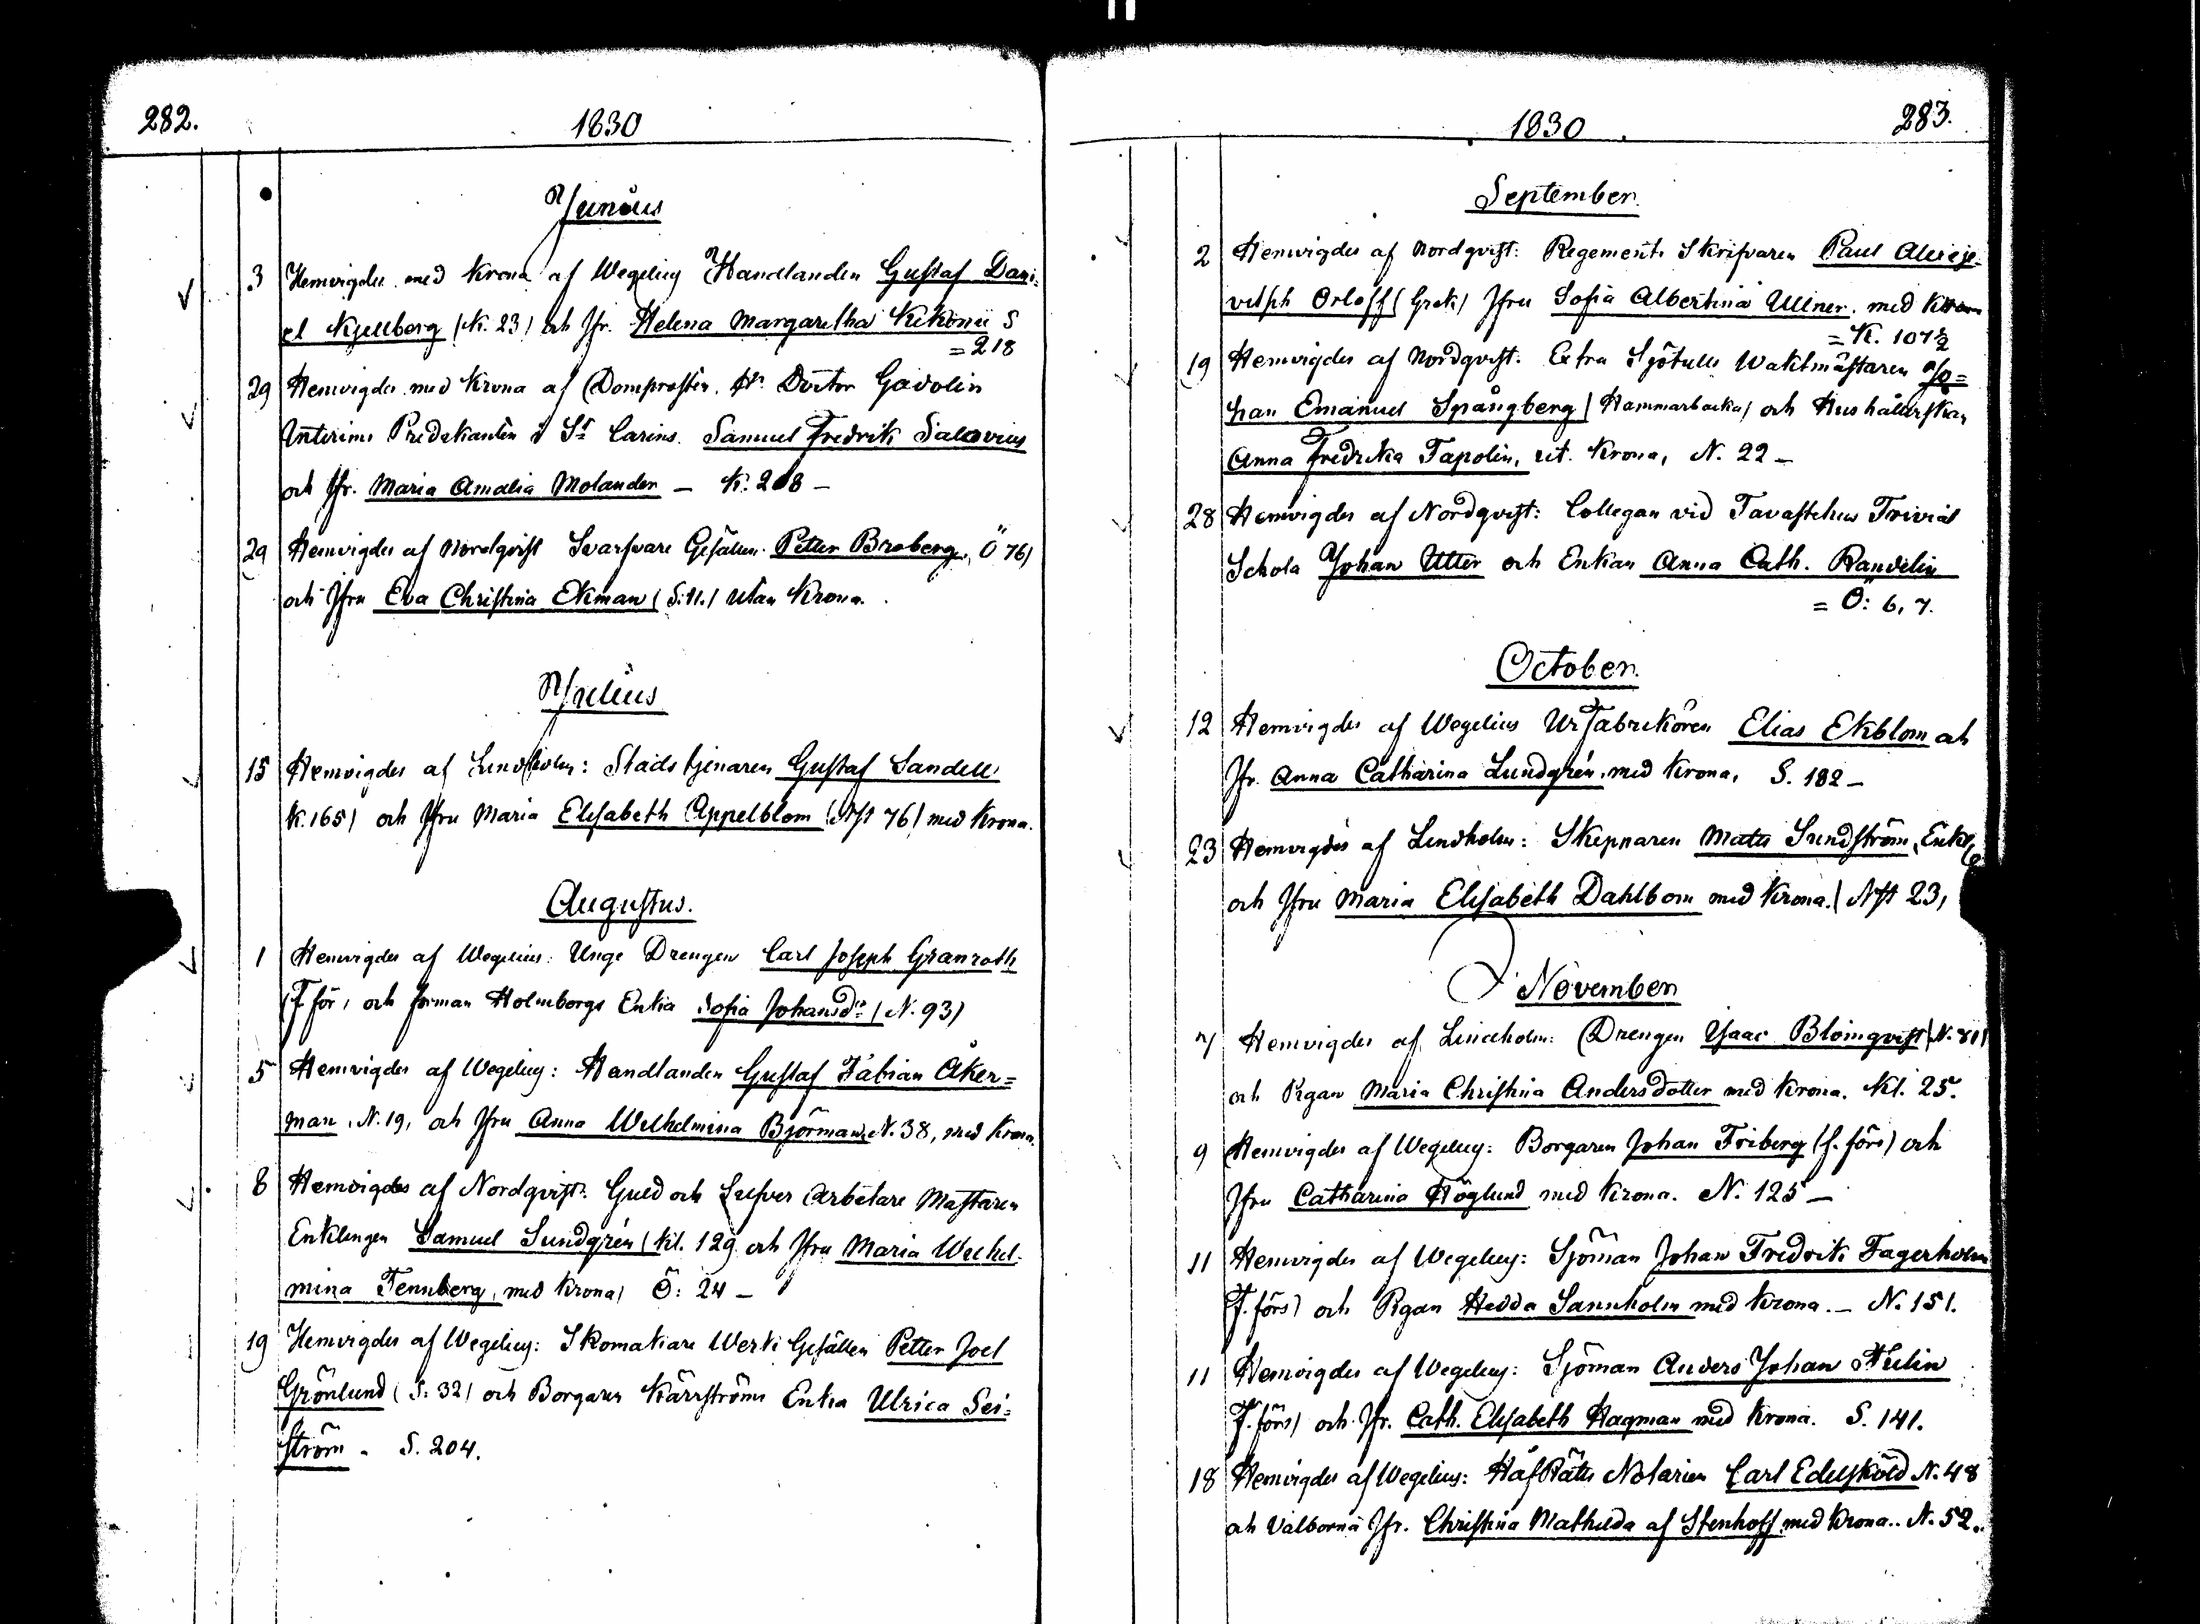 282.
1830
Junius
3 Hemvigdes med Krona af Wegelius Handlanden Gustaf Dani-
el Kjellberg (K. 23) och Jfr. Helena Margaretha Kekonii S
= 218
29 Hemvigdes med Krona af Domprosten. Hr Doctor Gadolin
Interims Predikanten i St Carins. Samuel Fredrik Salovius
och Jfr. Maria Amalia Molander – K: 208 –
29 Hemvigdes af Nordqvist Svarfvare Gesällen Petter Broberg, Ö 76)
och Jfru Eva Christina Ekman (S: 11.) utan Krona.
Julius
15 Hemvigdes af Lindholm: Stadstjenaren Gustaf Sandell
K. 165) och Jfru Maria Elisabeth Appelblom (Nst 76) med Krona.
Augustus.
1 Hemvigdes af Wegelius: Unge Drengen Carl Joseph Granroth
(F. för, och forman Holmborgs Enka Sofia Johansdr (N. 93)
5 Hemvigdes af Wegelius: Handlanden Gustaf Fabian Åker=
man, N. 19, och Jfru Anna Wilhelmina Björman, N. 38, med Krona.
8 Hemvigdes af Nordqvist: Guld och Silfver Arbetare Mästaren
Enklingen Samuel Sundgrén (Kl. 129 och Jfru Maria Wilhel-
mina Tennberg, med Krona, Ö: 24 –
19 Hemvigdes af Wegelius: Skomakare Werks Gesällen Petter Joel
Grönlund (S: 32) och Borgaren Kärrströms Enka Ulrica Sei=
ström – S. 204.
1830
283.
September
2 Hemvigdes af Nordqvist: Regements Skrifvaren Paul
Orloff (Grek) Jfru Sofia Albertina Ullner. med Krona
= K. 107 ½
19 Hemvigdes af Nordqvist: Extra Sjötulls Waktmästaren Jo=
han Emanuel Spångberg (Hammarbacka) och Hushållerskan
Anna Fredrika Tapolin, ut. Krona, N. 22 –
28 Hemvigdes af Nordqvist: Collegan vid Tavastehus Trivial
Schola Johan Utter och Enkan Anna Cath. Randelin
= Ö: 6, 7.
October.
12 Hemvigdes af Wegelius Ur Fabrikören Elias Ekblom och
Jfr. Anna Catharina Lundgrén, med Krona, S. 182 –
23 Hemvigdes af Lindholm: Skepparen Matts Sundström,
och Jfru Maria Elisabeth Dahlbom med Krona. (Nst 23,
November
7 Hemvigdes af Lindholm: Drengen Isaac Blomqvist (N. 81)
och Pigan Maria Christina Andersdotter med Krona. Kl. 25.
9 Hemvigdes af Wegelius: Borgaren Johan Friberg (f. förs) och
Jfru Catharina Höglund med Krona. N. 125 –
11 Hemvigdes af Wegelius: Sjöman Johan Fredrik Fagerholm
(F. förs) och Pigan Hedda Sannholm med Krona. – N. 151.
11 Hemvigdes af Wegelius: Sjöman Anders Johan
F. förs) och Jfr. Cath. Elisabeth Hagman med Krona. S. 141.
18 Hemvigdes af Wegelius: HafRätts Notarien Carl Edelsköld N. 48
och Välborna Jfr. Christina Mathilda af Stenhoff med Krona. N. 52.